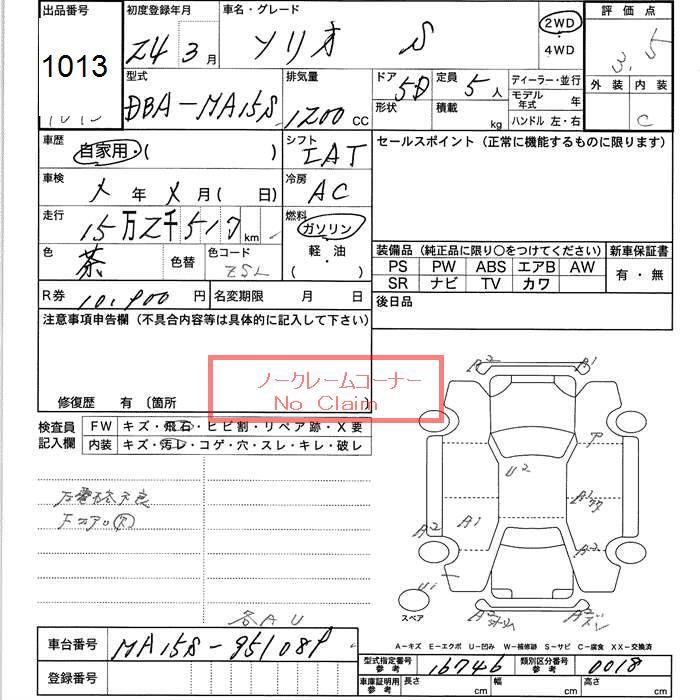 出品番号 初度登録年月 車名・グレード 評価点
1013 24 3月 ソリオ S 2WD 4WD 3.5
型式 排気量 ドア 形状 5D 定員 5人 積載 kg ディーラー・並行 モデル年式 年 ハンドル 左・右 外装 内装 C
DBA-MA15S 1200 CC
車歴 自家用・( ) シフト IAT セールスポイント(正常に機能するものに限ります)
車検 年 月( 日) 冷房 AC
走行 15万2千517km 燃料 ガソリン 軽・油 ( )
色 茶 色替 色コード ZSL
装備品(純正品に限り○をつけてください) 新車保証書
PS PW ABS エアB AW 有・無
SR ナビ TV カワ
R券 10,900円 名変期限 月 日 後日品
注意事項申告欄(不具合内容等は具体的に記入して下さい)
ノークレームコーナー
No Claim
修復歴 有(箇所 )
検査員記入欄 FW キズ・飛石・ヒビ割・リペア跡・X要
内装 キズ・汚レ・コゲ・穴・スレ・キレ・破レ
A2 B1
ア
U2
A2 A1 A2
スペア
各AU
車台番号 MA15S-951089
登録番号
A-キズ E-エクボ U-凹み W-補修跡 S-サビ C-腐食 XX-交換済
型式指定番号 参考 16746 類別区分番号 参考 0018
車庫証明用 参考 長さ cm 幅 cm 高さ cm